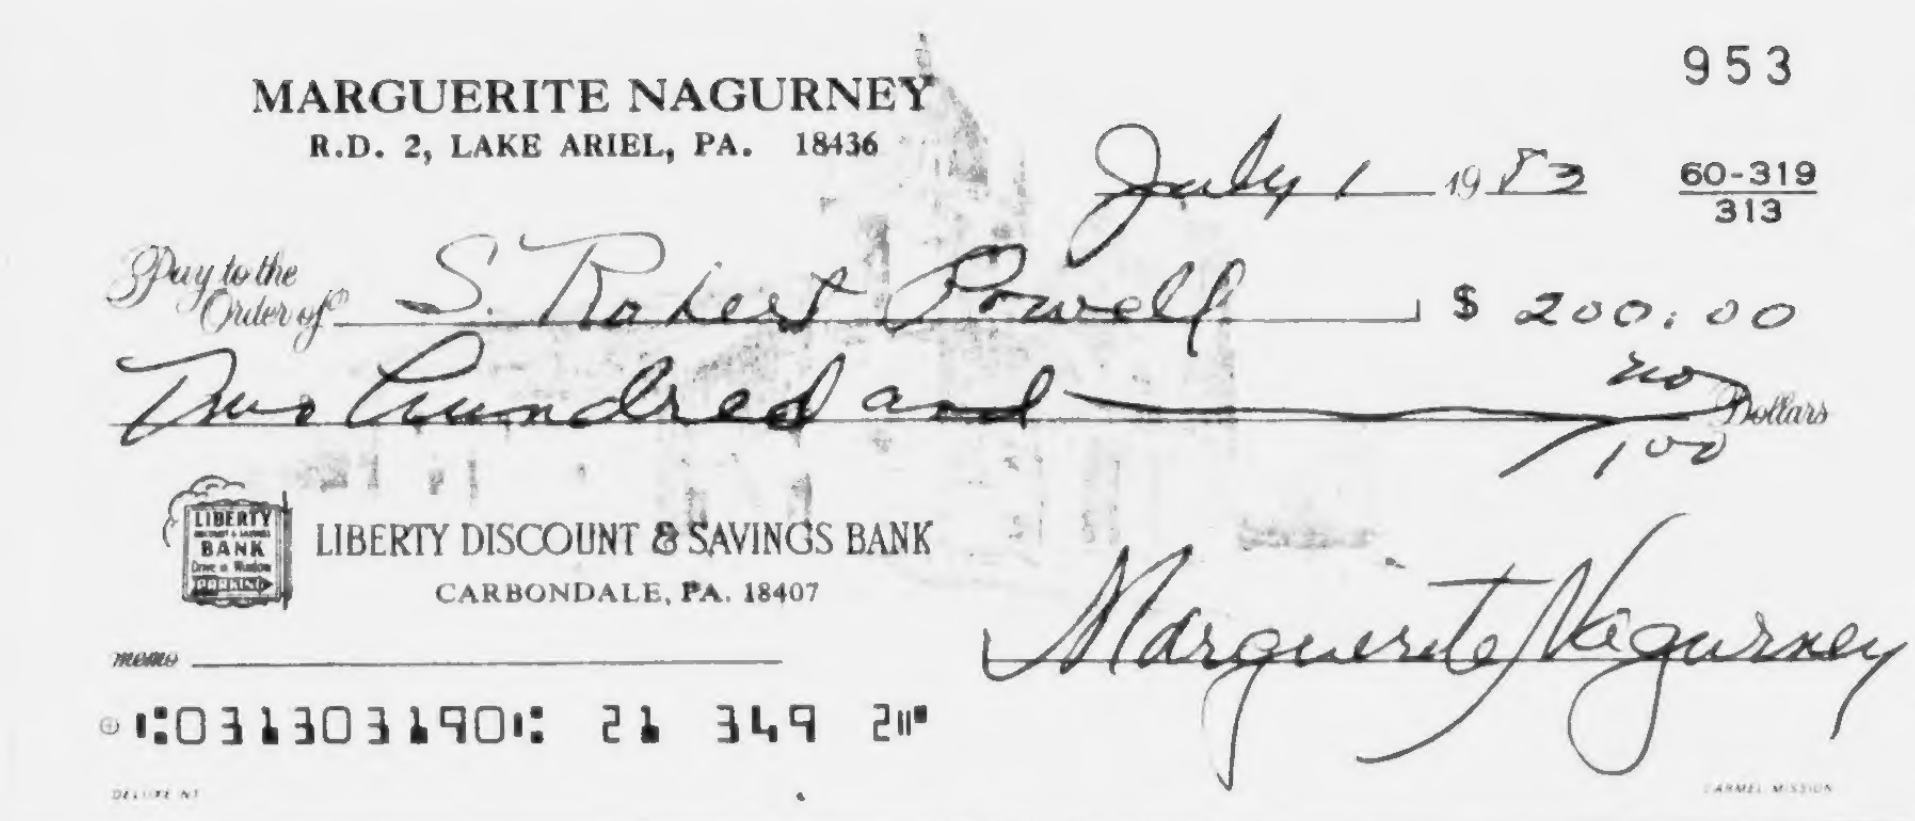 953
MARGUERITE NAGURNEY
R.D. 2, LAKE ARIEL, PA. 18436
July 1 1983
60-319
313
Pay to the
Order of S. Robert Powell $ 200.00
Two hundred and no/100 Dollars
LIBERTY
DISCOUNT & SAVINGS
BANK
Drive in Window
PARKING
LIBERTY DISCOUNT & SAVINGS BANK
CARBONDALE, PA. 18407
memo
Marguerite Nagurney
⑆031303190⑆ 21 349 2⑈
DELUXE
CARMEL MISSION